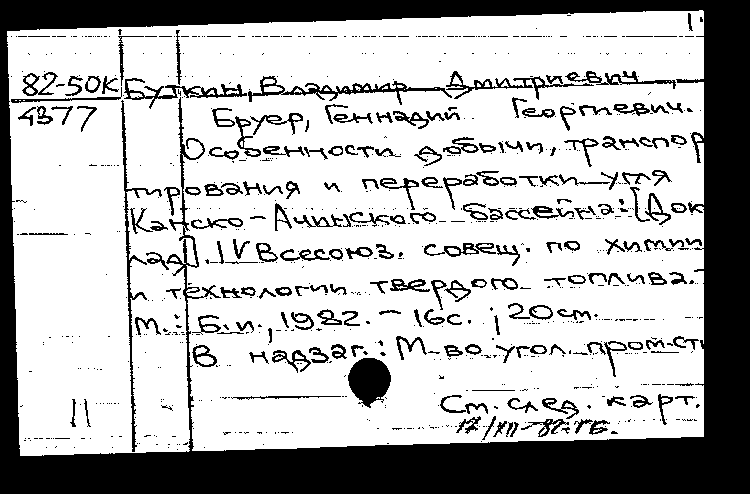 82-50К Буткин, Владимир Дмитриевич,
4377 Бруер, Геннадий Георгиевич.
Особенности добычи, транспор
тирования и переработки угля
Канско-Ачинского бассейна: [Док
лад]. IV Всесоюз. совещ. по химии
и технологии твердого топлива.-
М.: Б.и., 1982. - 16с. ; 20см.
В надзаг.: М-во угол. пром-сти
11 См. след. карт.
17/XII-82. ГБ.